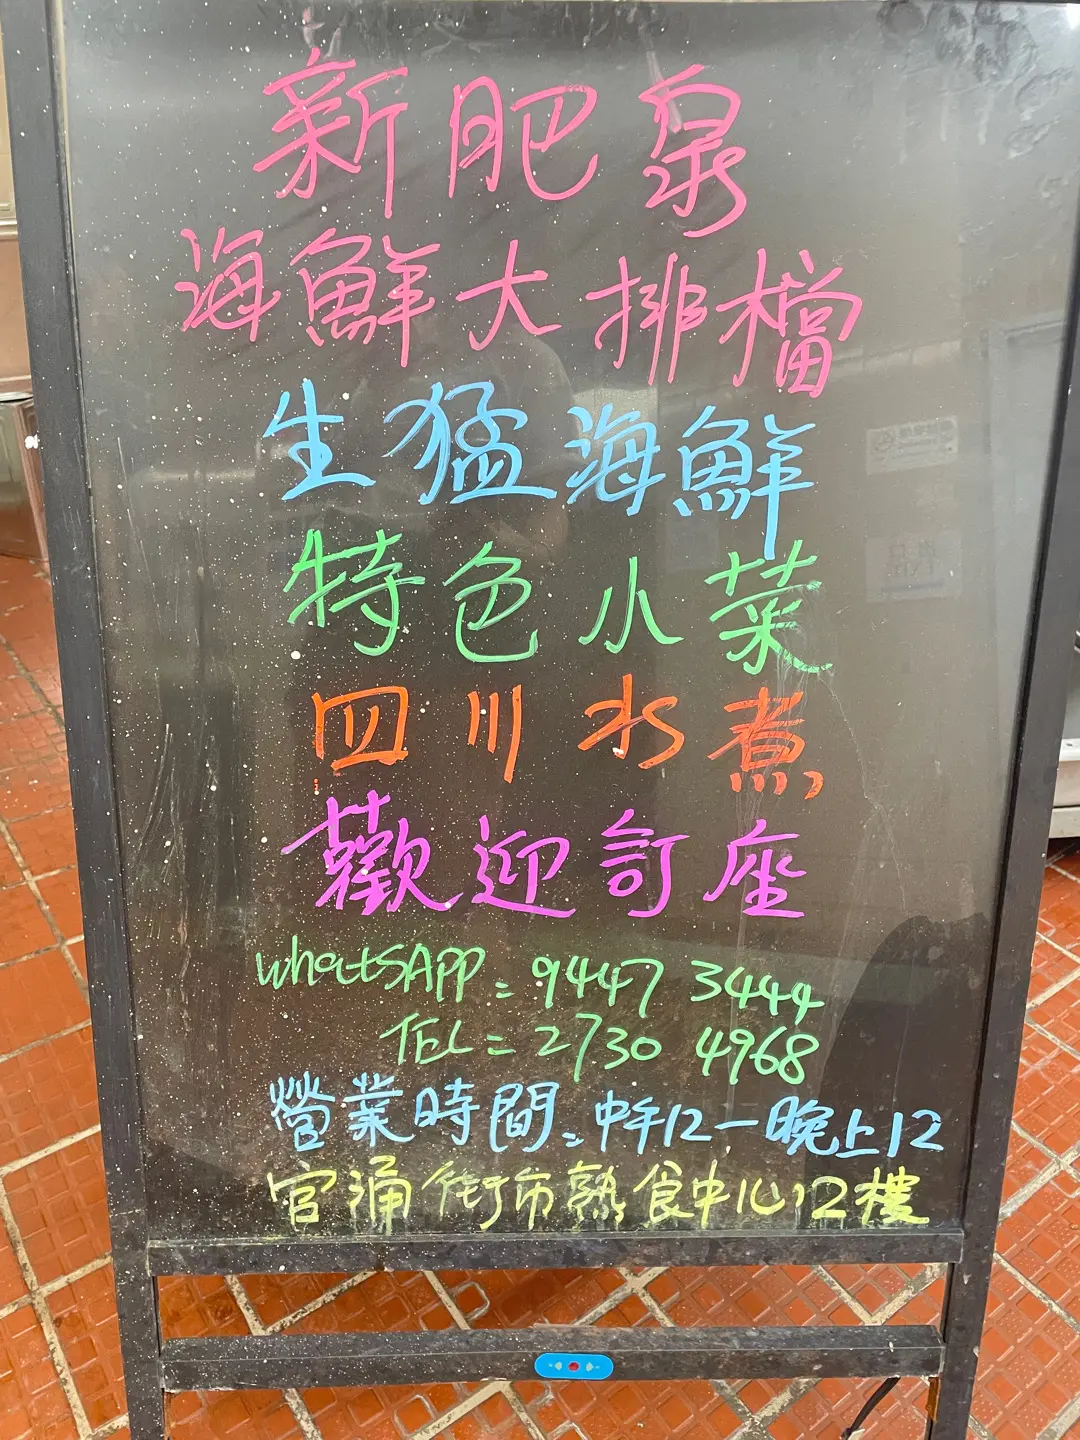 新肥泉
海鮮大排檔
生猛海鮮
特色小菜
四川水煮
歡迎訂座
WhatsAPP: 9447 3444
TEL: 2730 4968
營業時間: 中午12一晚上12
官涌街市熟食中心12樓